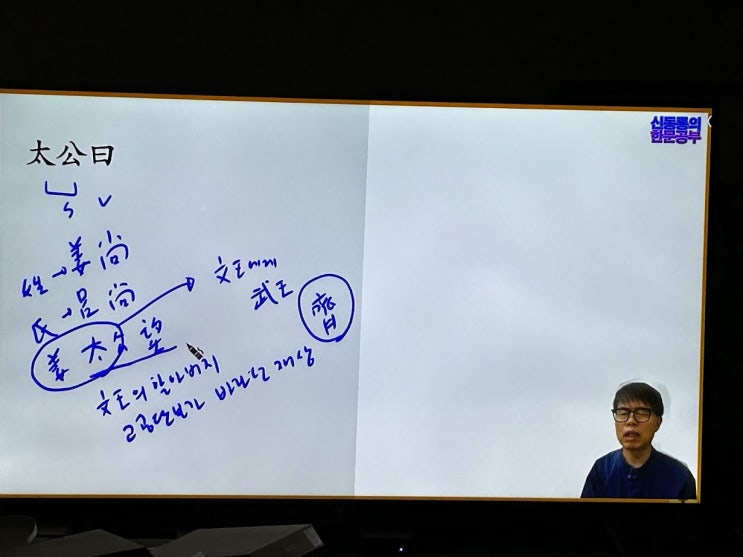 太公曰
S V
姓→姜尚
氏→呂尚
姜太公望
文王의 할아버지
고공단보가 바라는 재상
文王에게
武王
齊
신동틀의
한문공부